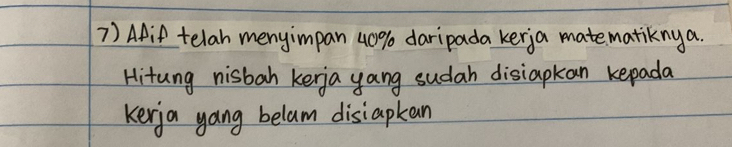 7) Afif telah menyimpan 40% daripada kerja matematiknya.
Hitung nisbah kerja yang sudah disiapkan kepada
kerja yang belum disiapkan